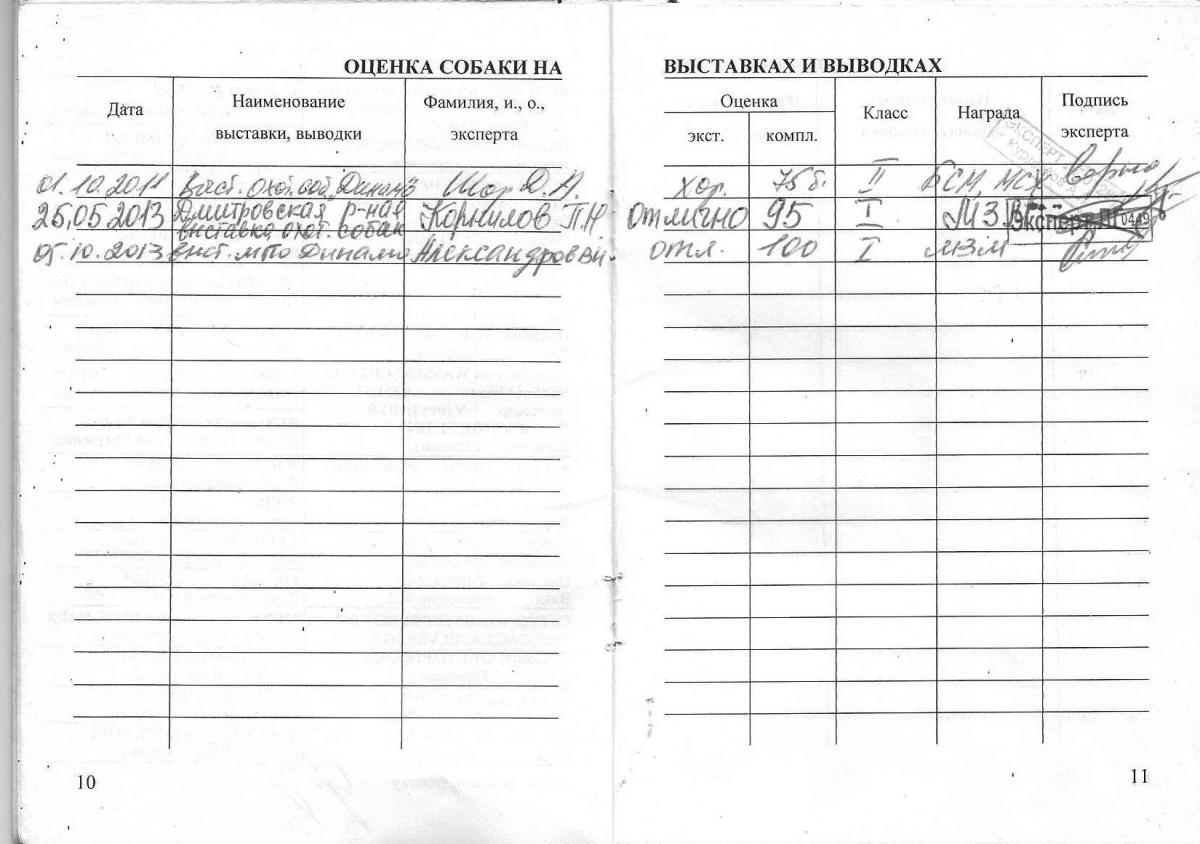 ОЦЕНКА СОБАКИ НА ВЫСТАВКАХ И ВЫВОДКАХ
Дата
Наименование выставки, выводки
Фамилия, и., о., эксперта
Оценка
экст.
компл.
Класс
Награда
Подпись эксперта
01.10.2011 Выст. охот. соб. Динамо Шор Д. хор. 75 б. II БСМ,
25,05 2013 Дмитровская р-ная выставка охот. собак Корнилов П.Н. отлично 95 I МЗ Эксперт
05.10.2013 выст. МГО Динамо Александров В.И. отл. 100 I МЗМ
ЭКСПЕРТ
10
11